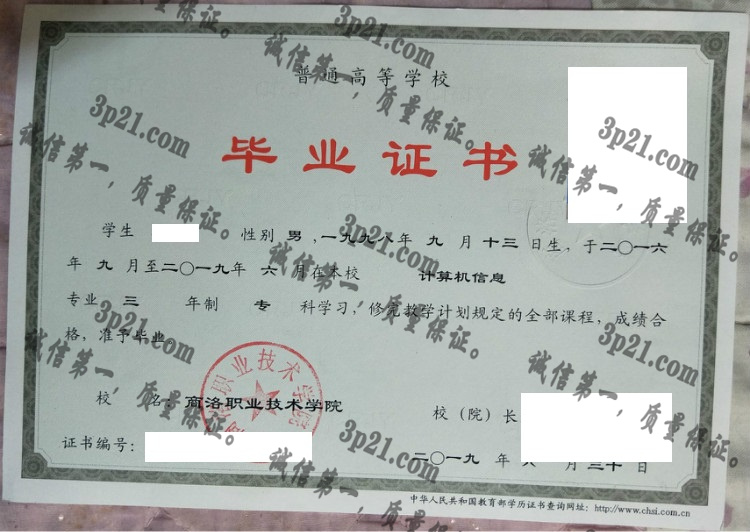 普通高等学校
毕业证书
学生 性别 男，一九九八年 九 月 十三 日生，于二〇一六
年 九 月至二〇一九年 六 月在本校 计算机信息
专业 三 年制 专 科学习，修完教学计划规定的全部课程，成绩合
格，准予毕业。
校 名：商洛职业技术学院
校（院）长
证书编号：
二〇一九 年 六 月 三十 日
中华人民共和国教育部学历证书查询网址：http://www.chsi.com.cn
商洛职业技术学院
3p21.com
诚信第一，质量保证。
3p21.com
诚信第一，质量保证。
3p21.com
诚信第一，质量保证。
3p21.com
诚信第一，质量保证。
3p21.com
诚信第一，质量保证。
3p21.com
诚信第一，质量保证。
3p21.com
诚信第一，质量保证。
3p21.com
诚信第一，质量保证。